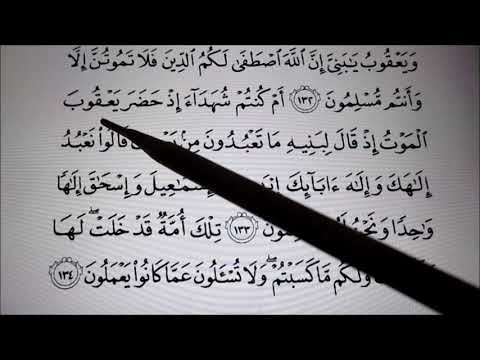 وَيَعْقُوبُ يَٰبَنِىَّ إِنَّ ٱللَّهَ ٱصْطَفَىٰ لَكُمُ ٱلدِّينَ فَلَا تَمُوتُنَّ إِلَّا
وَأَنتُم مُّسْلِمُونَ ١٣٢ أَمْ كُنتُمْ شُهَدَآءَ إِذْ حَضَرَ يَعْقُوبَ
ٱلْمَوْتُ إِذْ قَالَ لِبَنِيهِ مَا تَعْبُدُونَ مِنۢ قَالُوا۟ نَعْبُدُ
إِلَٰهَكَ وَإِلَٰهَ ءَابَآئِكَ وَإِسْحَٰقَ إِلَٰهًا
وَٰحِدًا ١٣٣ تِلْكَ أُمَّةٌ قَدْ خَلَتْ ۖ لَهَا
وَلَكُم مَّا كَسَبْتُمْ ۖ وَلَا تُسْـَٔلُونَ عَمَّا كَانُوا۟ يَعْمَلُونَ ١٣٤